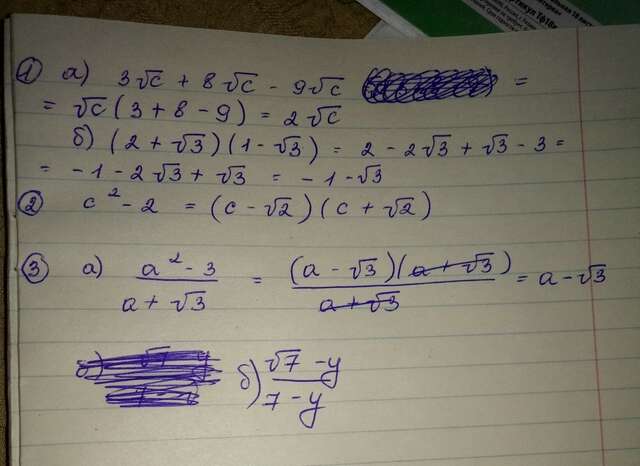 ① а) 3√c + 8√c - 9√c =
= √c (3 + 8 - 9) = 2√c
б) (2 + √3)(1 - √3) = 2 - 2√3 + √3 - 3 =
= -1 - 2√3 + √3 = -1 - √3
② c² - 2 = (c - √2)(c + √2)
③ а) (a² - 3)/(a + √3) = ((a - √3)(a + √3))/(a + √3) = a - √3
б) (√7 - y)/(7 - y)